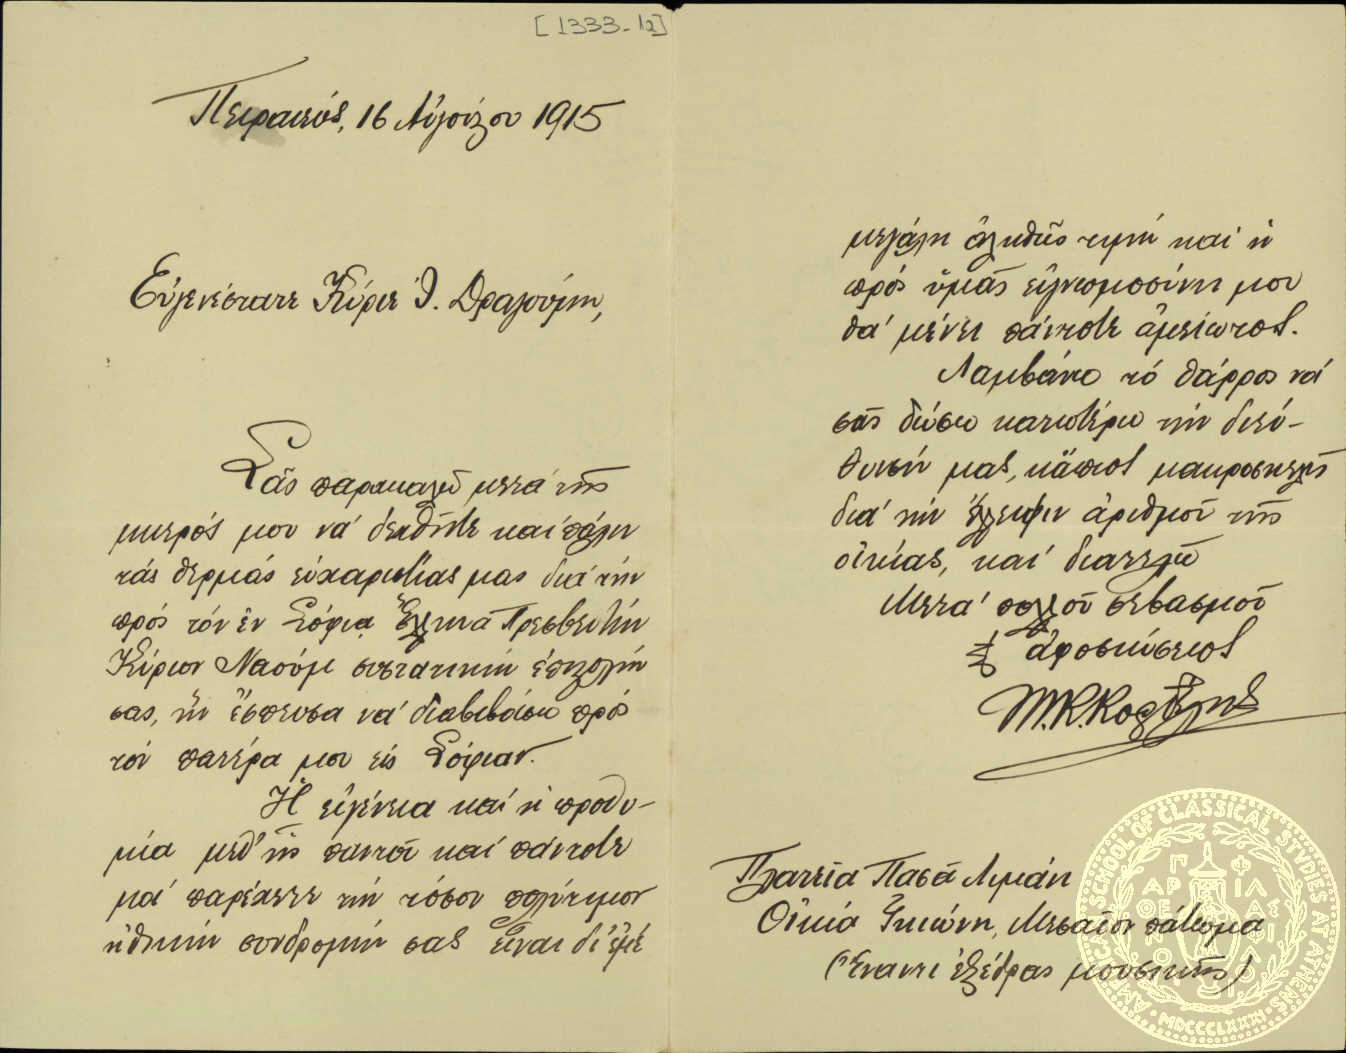 [1333-12]
Πειραιεύς, 16 Αὐγούστου 1915
Εὐγενέστατε Κύριε Ἴ. Δραγούμη,
Σᾶς παρακαλῶ μετὰ τῆς
μητρός μου νὰ δεχθῆτε καὶ πάλιν
τὰς θερμὰς εὐχαριστίας μας διὰ τὴν
πρὸς τὸν ἐν Σόφιᾳ Ἕλληνα Πρεσβευτὴν
Κύριον Ναοὺμ συστατικὴν ἐπιστολὴν
σας, ἣν ἔσπευσα νὰ διαβιβάσω πρὸς
τὸν πατέρα μου εἰς Σόφιαν.
Ἡ εὐγένεια καὶ ἡ προθυ-
μία μεθ' ἧς παντοῦ καὶ πάντοτε
μᾶς παρέχετε τὴν τόσον πολύτιμον
ἠθικὴν συνδρομήν σας εἶναι δι' ἐμὲ
μεγάλη ἀληθῶς τιμὴ καὶ ἡ
πρὸς ὑμᾶς εὐγνωμοσύνη μου
θὰ μένει πάντοτε ἀμείωτος.
Λαμβάνω τὸ θάρρος νὰ
σᾶς δώσω κατωτέρω τὴν διεύ-
θυνσίν μας, κάπως μακροσκελῆ
διὰ τὴν ἔλλειψιν ἀριθμοῦ τῆς
οἰκίας, καὶ διατελῶ
Μετὰ πολλοῦ σεβασμοῦ
& ἀφοσιώσεως
Πλατεῖα Πασᾶ Λιμάνι
Οἰκία Μεσαῖον πάτωμα
(Ἔναντι ἐξέδρας μουσικῆς)
AMERICAN SCHOOL OF CLASSICAL STUDIES AT ATHENS
MDCCCLXXXI